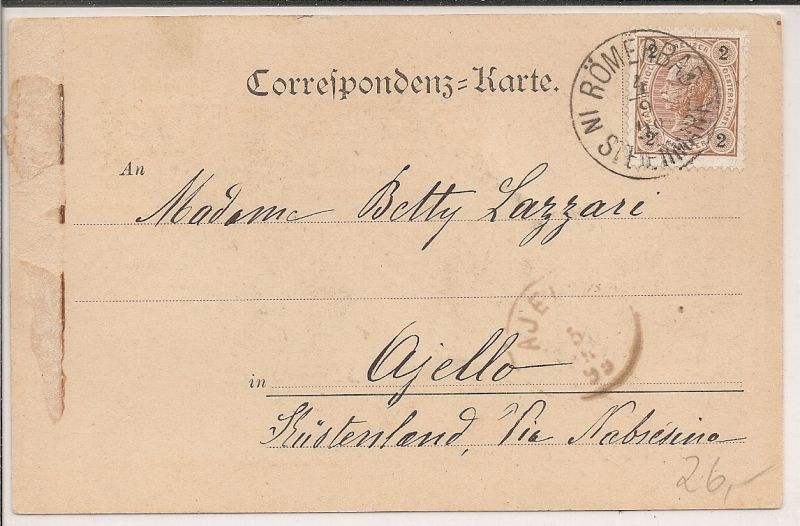 Correſpondenz=Karte.
RÖMERBAD
IN STEIERMARK
2 2
2 2
An
Madame Betty Lazzari
AJE
in Ajello
Küstenland, Via Nabresina
26,-